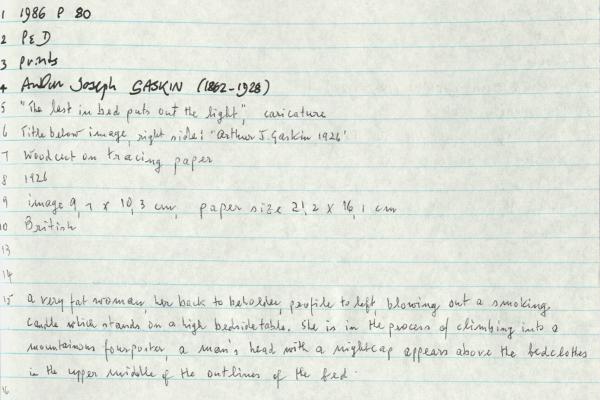 1 1986 P 80
2 P&D
3 Prints
4 Arthur Joseph GASKIN (1862-1928)
5 "The last in bed puts out the light", caricature
6 Title below image, right side: "Arthur J. Gaskin 1926"
7 Woodcut on tracing paper
8 1926
9 image 9,7 x 10,3 cm, paper size 21,2 x 16,1 cm
10 British
13
14
15 a very fat woman, her back to beholder, profile to left, blowing out a smoking
candle which stands on a high bedside table. She is in the process of climbing into a
mountainous fourposter, a man's head with a nightcap appears above the bedclothes
in the upper middle of the outlines of the bed.
16